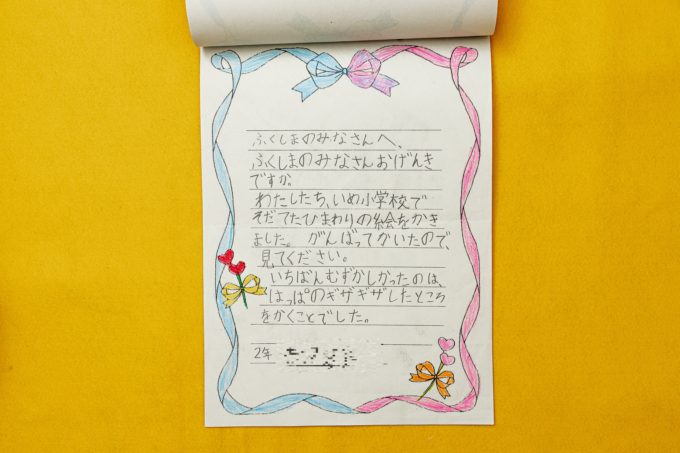 ふくしまのみなさんへ、
ふくしまのみなさんおげんき
ですか。
わたしたち、いめ小学校で
そだてたひまわりの絵をかき
ました。がんばってかいたので、
見てください。
いちばんむずかしかったのは、
はっぱのギザギザしたところ
をかくことでした。
2年